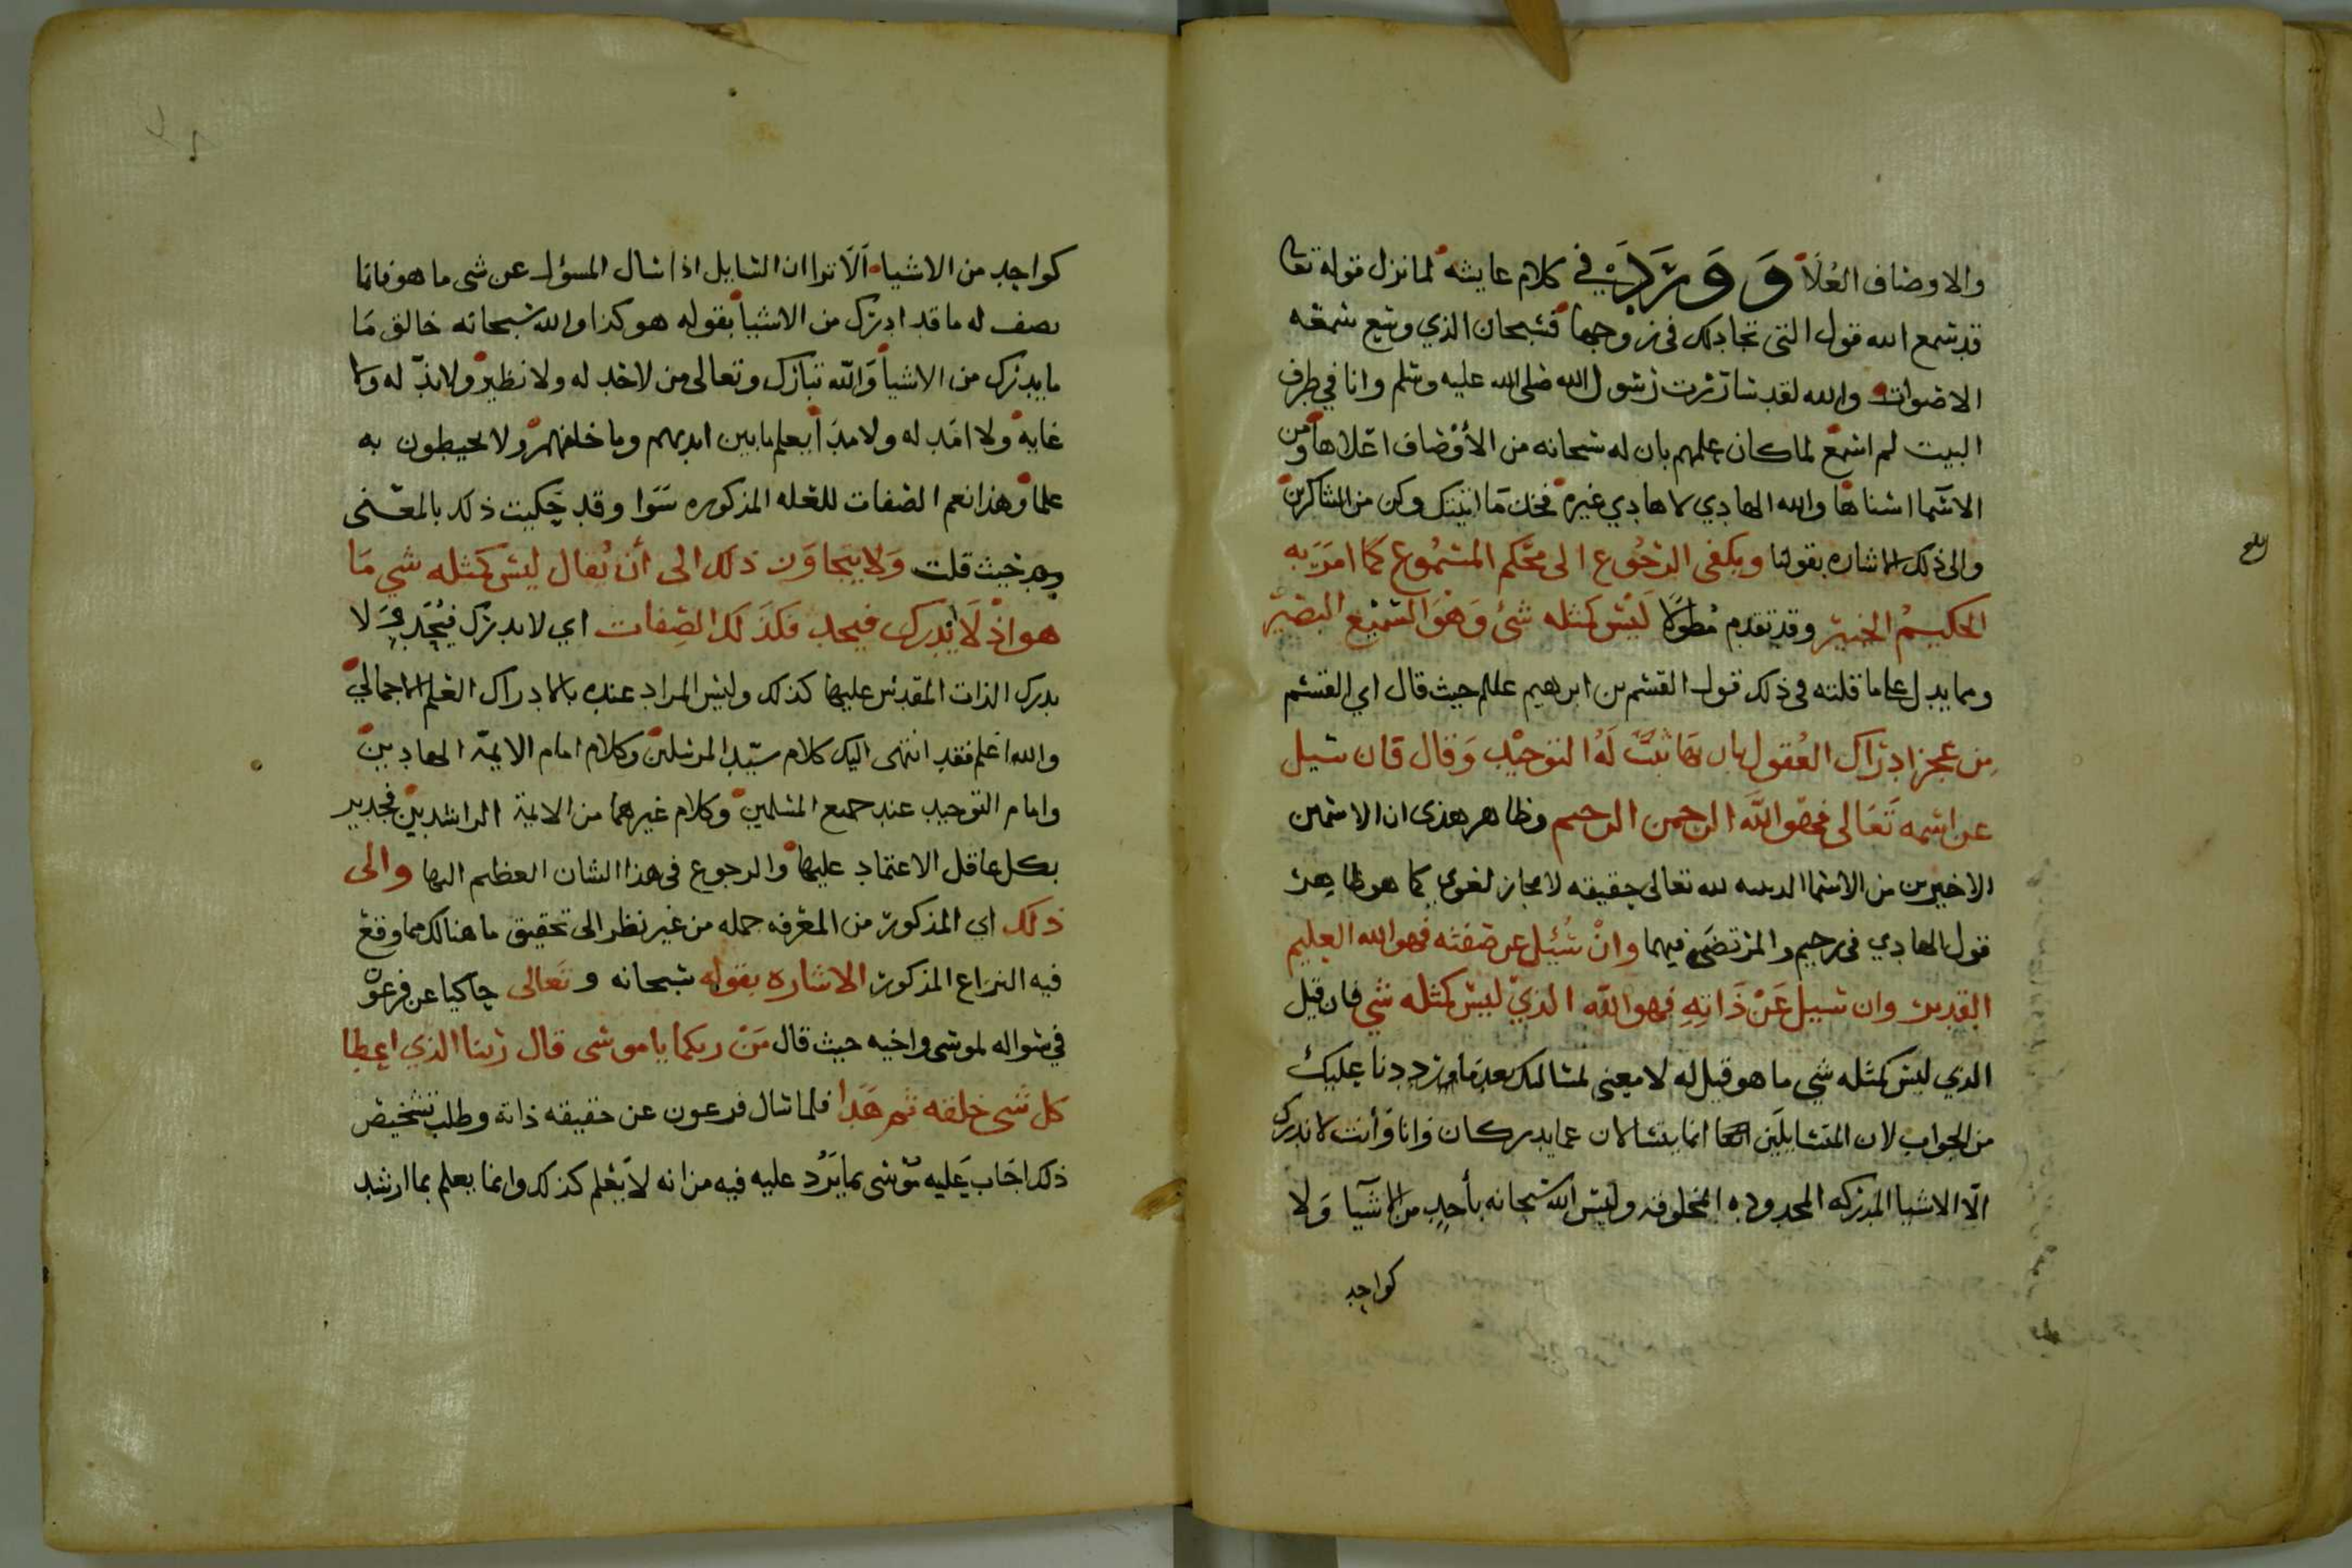 والاوصاف العُلَا وَوَرَدَ في كلام عايشه لما نزل قوله تعا
قد سمع الله قول التي تجادلك في زوجها فسبحان الذي وسع سمعه
الاصوات والله لقد تساررت رسول الله صلى الله عليه وسلم وانا في طرف
البيت لم اسمع لما كان علمهم بان له سبحانه من الأوصاف اعلاها ومن
الاسما اسناها والله الهادي لا هادي غيره فخذ ما اتيتك وكن من الشاكرين
والى ذلك الاشاره بقولنا ويكفي الرجوع الى محكم المسموع كما امر به
الحكيم الخبير وقد تقدم مطولا ليس كمثله شئ وهو السميع البصير
ومما يدل على ما قلته في ذلك قول القسم بن ابرهيم عللم حيث قال اي القسم
من عجز ادراك العقول بان بها ثبت له التوحيد وقال فان سيل
عن اسمه تعالى فهو الله الرحمن الرحيم وظاهر هذي ان الاسمين
الاخيرين من الاسما الدينيه لله تعالى حقيقه لا مجاز لغوي كما هو ظاهر
قول الهادي في رحيم والمرتضى فيهما وان سُئِل عن صفته فهو الله العليم
القدير وان سيل عن ذاته فهو الله الذي ليس كمثله شي فان قيل
الذي ليس كمثله شي ما هو قيل له لا معنى لمسالتك بعد ما رددنا عليك
من الجواب لان المتسايلَين انما يتسالان عما يدركان وانا وأنت لا ندرك
الّا الاشيا المدركه المحدوده المخلوقه وليس الله سبحانه بأحد من الاشيا ولا
كواحد
كواحد من الاشيا الَا ترا ان السايل اذا سال المسؤل عن شي ما هو فانما
يصف له ما قد ادرك من الاشيا بقوله هو كذا والله سبحانه خالق مَا
ما يدرك من الاشيا والله تبارك وتعالى من لا حد له ولا نظير ولا ندّ له ولا
غايه ولا امَد له ولا مدَا يعلم ما بين ايديهم وما خلفهم ولا يحيطون به
علما وهذا نعم الصفات للعله المذكوره سَوَا وقد حكيت ذلك بالمعنى
حيث قلت وَلا يتجاوَز ذلك الى أن يُقال ليس كمثله شي مَا
هو اذْ لَا يُدرك فيحد فكَذَلك الصِفات اي لا يدرك فيُحَد لا
يدرك الذات المقدس عليها كذلك وليس المراد عنده بالادراك العلم الاجمالي
والله اعلم فقد انتهى اليك كلام سيّد المرسلين وكلام امام الايمّة الهادين
وامام التوحيد عند جميع المسلمين وكلام غيرهما من الايمة الراشدين فجدير
بكل عاقل الاعتماد عليها والرجوع في هذا الشان العظيم اليها والى
ذلك اي المذكور من المعرفه جمله من غير نظر الى تحقيق ما هنالك مما وقع
فيه النزاع المذكور الاشاره بقوله سبحانه وتعالى حاكيا عن فرعون
في سواله لموسى واخيه حيث قال مَنْ ربكما يا موسى قال ربنا الذي اعطا
كل شي خلقه ثم هَدا فلما سال فرعون عن حقيقه ذاته وطلب تشخيص
ذلك اجَاب عَليه موسى بما يَرُد عليه فيه من انه لا يُعلم كذلك وانما يعلم بما ارشد